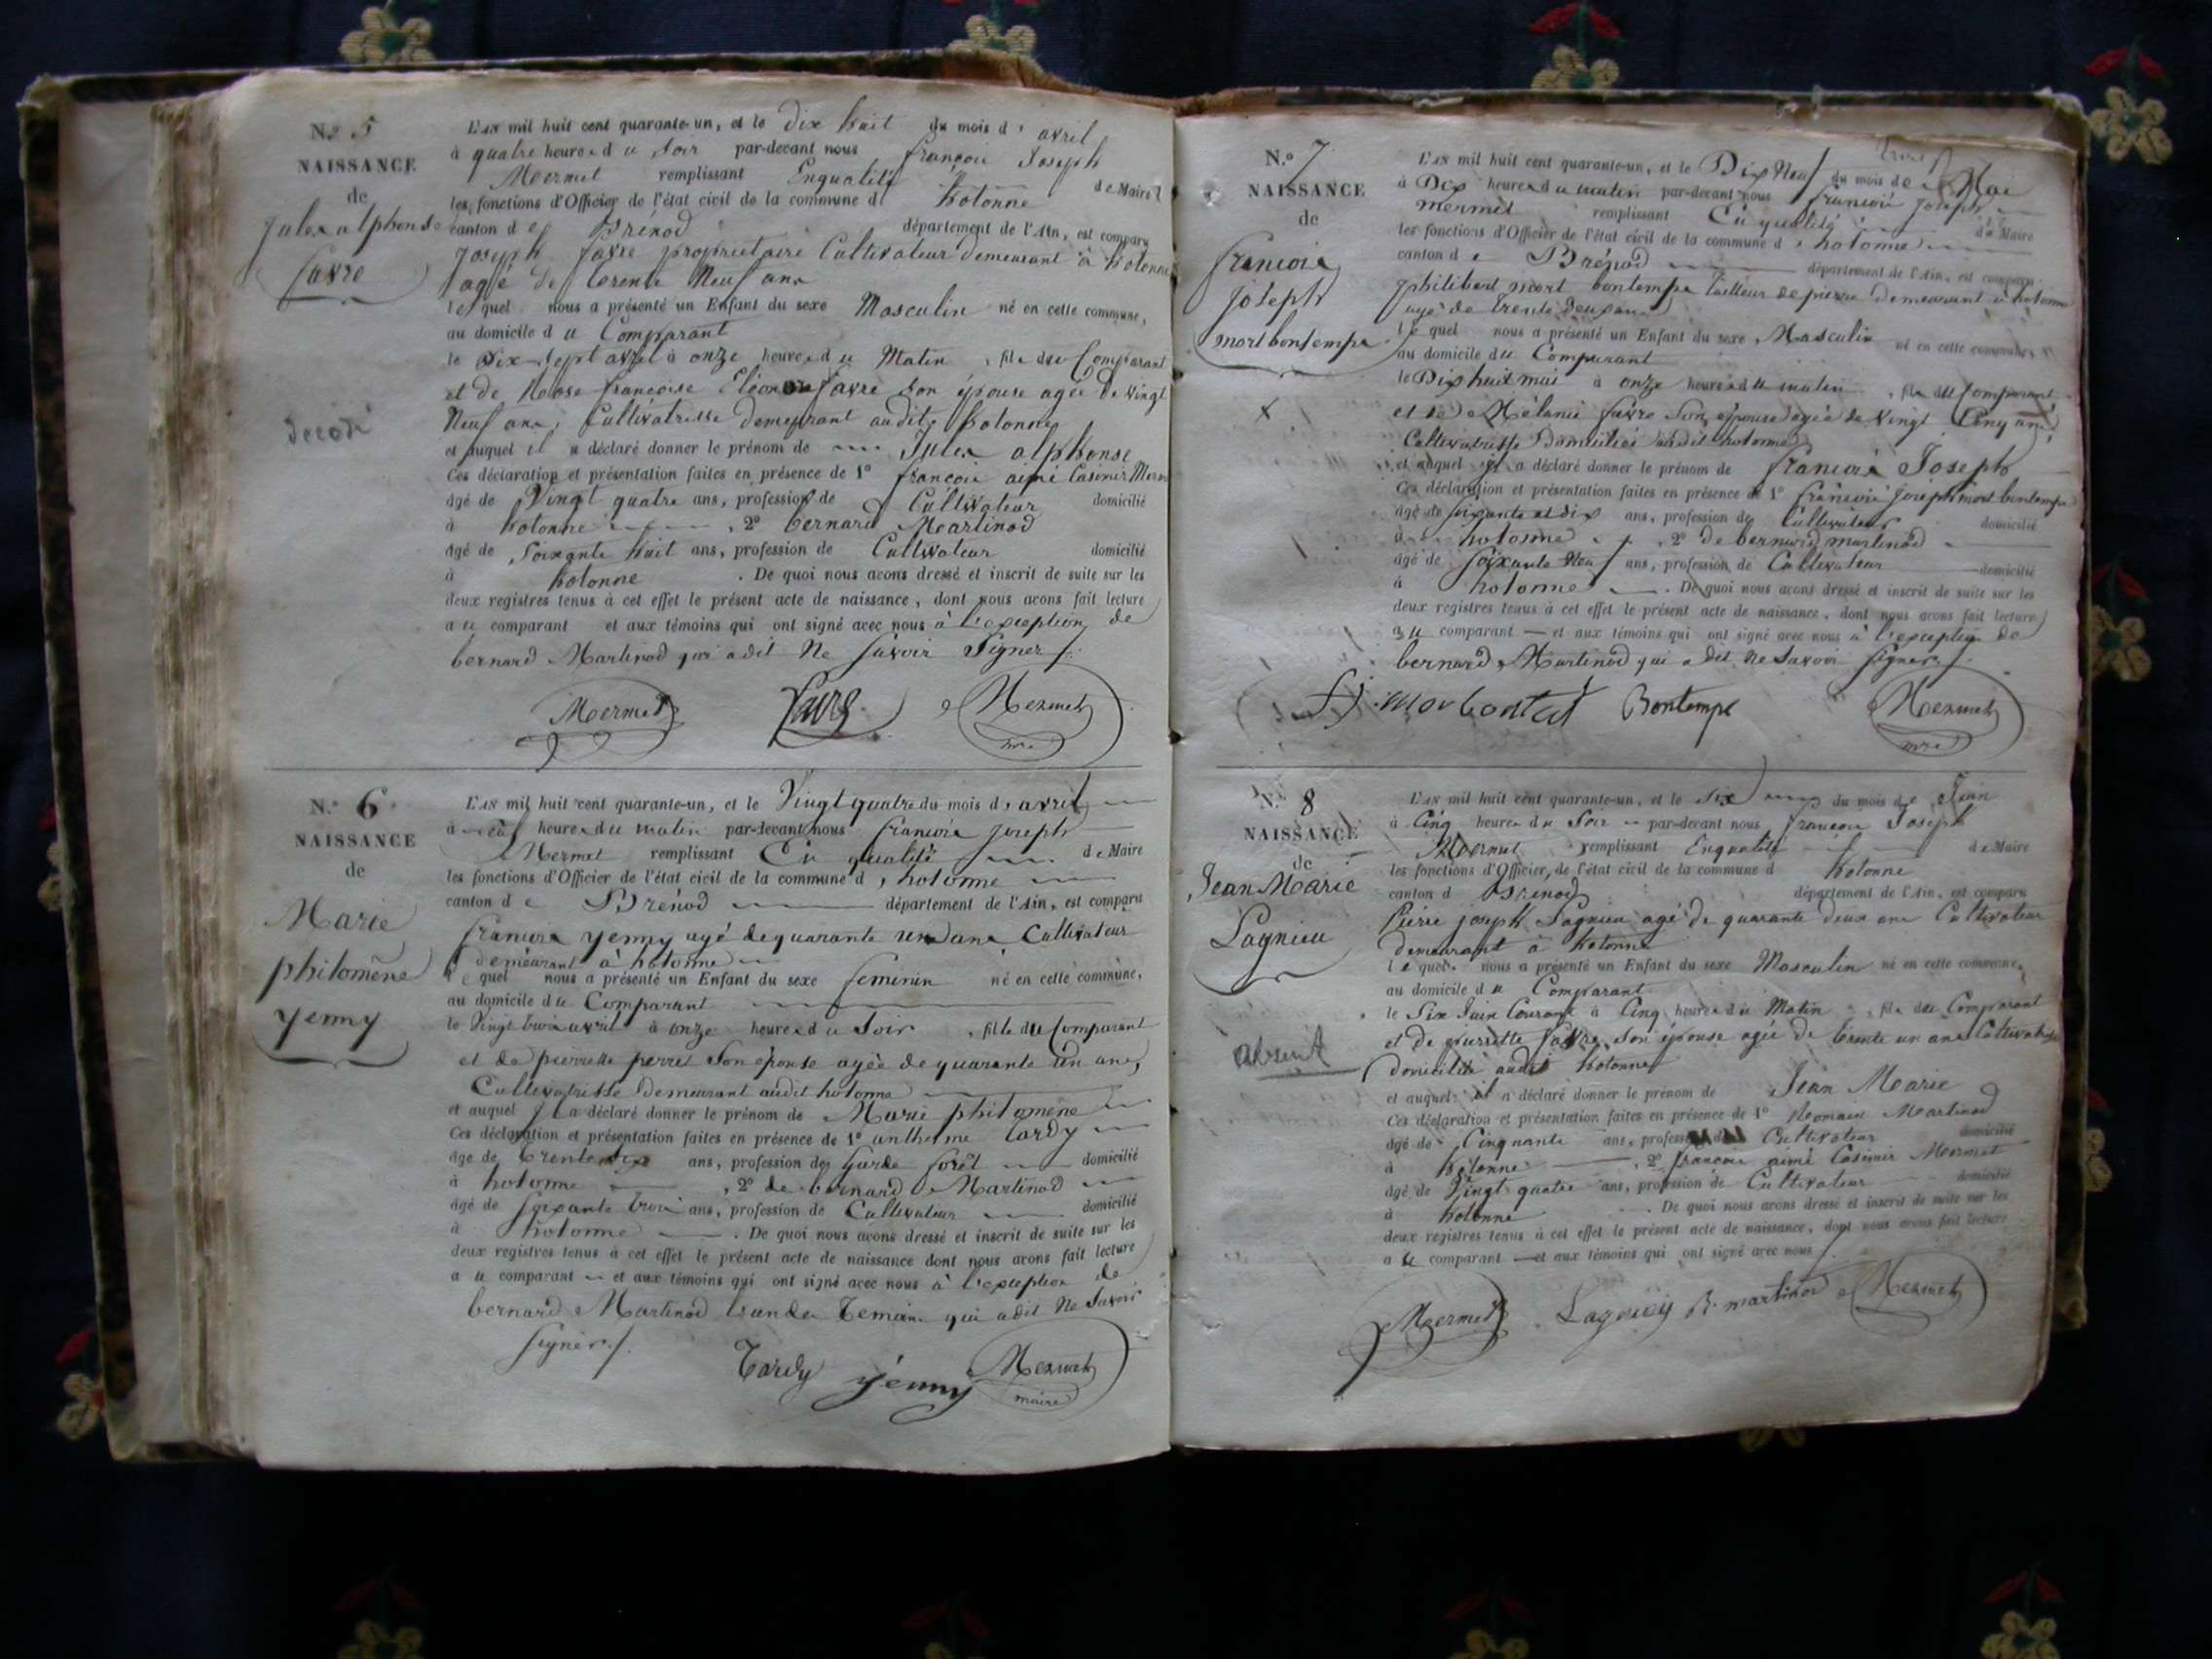 N.o 5
NAISSANCE
de
Jules alphonse
favre
décédé
L'AN mil huit cent quarante-un, et le dix huit du mois d'avril
à quatre heures du soir par-devant nous françois Joseph
Mermet remplissant Enqualité de Maire
les fonctions d'Officier de l'état civil de la commune d hotonne
canton de Brénod département de l'Ain, est comparu
Joseph favre propriétaire Cultivateur demeurant à hotonne
agé de trente Neuf ans
lequel nous a présenté un Enfant du sexe Masculin né en cette commune,
au domicile du Comparant
le dix-sept avril à onze heures du Matin, fils du Comparant
et de Rose françoise Eléonore favre son épouse agée de vingt
Neuf ans, Cultivatrisse demeurant audit hotonne
et auquel il a déclaré donner le prénom de Jules alphonse
Ces déclaration et présentation faites en présence de 1o françois aimé Casimir Mermet
âgé de Vingt quatre ans, profession de Cultivateur domicilié
à hotonne, 2o bernard Martinod
âgé de Soixante huit ans, profession de Cultivateur domicilié
à hotonne. De quoi nous avons dressé et inscrit de suite sur les
deux registres tenus à cet effet le présent acte de naissance, dont nous avons fait lecture
au comparant et aux témoins qui ont signé avec nous à l'exception de
bernard Martinod qui a dit Ne savoir Signer
Mermet favre Mermet
mre
N.o 6
NAISSANCE
de
Marie
philomène
yenny
L'AN mil huit cent quarante-un, et le Vingt quatre du mois d'avril
à heures du matin par-devant nous françois joseph
Mermet remplissant En qualité de Maire
les fonctions d'Officier de l'état civil de la commune d'hotonne
canton de Brénod département de l'Ain, est comparu
françois yenny agé de quarante un ans Cultivateur
demeurant à hotonne
lequel nous a présenté un Enfant du sexe feminin né en cette commune,
au domicile du Comparant
le Vingt trois avril à onze heures du Soir, fille du Comparant
et de pierrette perret Son épouse agée de quarante un ans,
Cultivatrisse demeurant audit hotonne
et auquel il a déclaré donner le prénom de Marie philomène
Ces déclaration et présentation faites en présence de 1o anthelme tardy
âgé de trente ans, profession de Garde forêt domicilié
à hotonne, 2o de bernard Martinod
âgé de soixante trois ans, profession de Cultivateur domicilié
à hotonne. De quoi nous avons dressé et inscrit de suite sur les
deux registres tenus à cet effet le présent acte de naissance dont nous avons fait lecture
au comparant et aux témoins qui ont signé avec nous à l'exception de
bernard Martinod qui a dit Ne Savoir
signer
Tardy yenny Mermet
maire
N.o 7
NAISSANCE
de
francois
joseph
mort bontemps
x
L'AN mil huit cent quarante-un, et le Dix Neuf du mois de Mai
à Dix heures du matin par-devant nous françois joseph
mermet remplissant En qualité de Maire
les fonctions d'Officier de l'état civil de la commune d'hotonne
canton de Brénod département de l'Ain, est comparu
philibert mort bontemps tailleur de pierre demeurant à hotonne
agé de trente deux ans
lequel nous a présenté un Enfant du sexe Masculin né en cette commune,
au domicile du Comparant
le Dix huit mai à onze heures du matin, fils du Comparant
et de Mélanie favre Son épouse agée de vingt Cinq ans,
Cultivatrisse Domiciliée audit hotonne
et auquel il a déclaré donner le prénom de francois Joseph
Ces déclaration et présentation faites en présence de 1o francois joseph mort bontemps
âgé de soixante et dix ans, profession de Cultivateur domicilié
à hotonne, 2o de bernard martinod
âgé de soixante Neuf ans, profession de Cultivateur domicilié
à hotonne. De quoi nous avons dressé et inscrit de suite sur les
deux registres tenus à cet effet le présent acte de naissance, dont nous avons fait lecture
au comparant et aux témoins qui ont signé avec nous à l'exception de
bernard Martinod qui a dit Ne Savoir signer
Bontemps Mermet
mre
N.o 8
NAISSANCE
de
Jean Marie
Lagnieu
absent
L'AN mil huit cent quarante-un, et le Six du mois de Juin
à Cinq heures du Soir par-devant nous francois Joseph
Mermet remplissant Enqualité de Maire
les fonctions d'Officier de l'état civil de la commune d hotonne
canton d Brenod département de l'Ain, est comparu
Pierre joseph Lagnieu agé de quarante deux ans Cultivateur
demeurant à hotonne
lequel nous a présenté un Enfant du sexe Masculin né en cette commune,
au domicile du Comparant
le Six Juin Courant à Cinq heures du Matin, fils du Comparant
et de pierrette favre, son épouse agée de trente un ans Cultivatrisse
domiciliée audit hotonne
et auquel il a déclaré donner le prénom de Jean Marie
Ces déclaration et présentation faites en présence de 1o Romain Martinod
âgé de Cinquante ans, profession de Cultivateur domicilié
à hotonne, 2o francois aimé Casimir Mermet
âgé de Vingt quatre ans, profession de Cultivateur domicilié
à hotonne. De quoi nous avons dressé et inscrit de suite sur les
deux registres tenus à cet effet le présent acte de naissance, dont nous avons fait lecture
au comparant et aux témoins qui ont signé avec nous
Mermet Lagnieu R. martinod Mermet